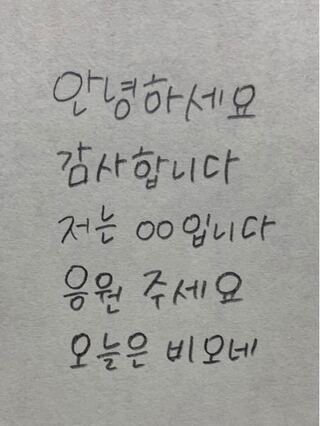 안녕하세요
감사합니다
저는 OO입니다
응원 주세요
오늘은 비오네